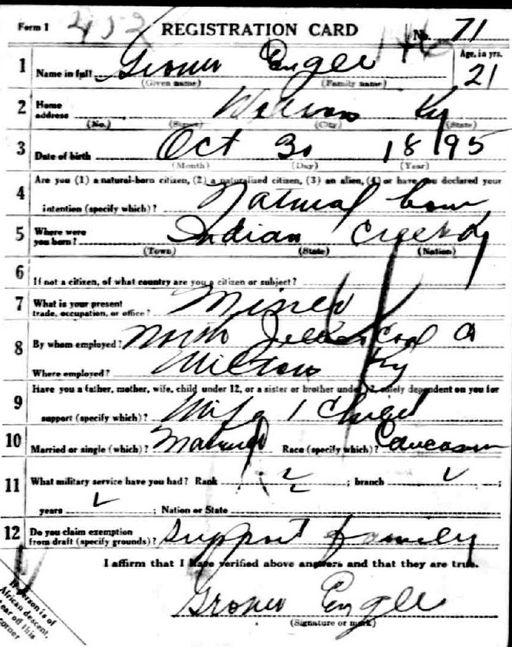 Form 1 REGISTRATION CARD No. 71
1 Name in full Groner Engle Age, in yrs. 21
(Given name) (Family name)
2 Home address Wilton Ky
(No.) (Street) (City) (State)
3 Date of birth Oct 30 1895
(Month) (Day) (Year)
4 Are you (1) a natural-born citizen, (2) a naturalized citizen, (3) an alien, (4) or have you declared your
intention (specify which)? Natural born
5 Where were you born? Indian Creek Ky
(Town) (State) (Nation)
6 If not a citizen, of what country are you a citizen or subject?
7 What is your present trade, occupation, or office? Miner
8 By whom employed? North Jellico Coal Co
Where employed? Wilton Ky
9 Have you a father, mother, wife, child under 12, or a sister or brother under 12, solely dependent on you for
support (specify which)? Wife 1 Child
10 Married or single (which)? Married Race (specify which)? Caucasian
11 What military service have you had? Rank ; branch ;
years ; Nation or State
12 Do you claim exemption from draft (specify grounds)? Support family
I affirm that I have verified above answers and that they are true.
Groner Engle
(Signature or mark)
If person is of
African descent,
tear off this
corner